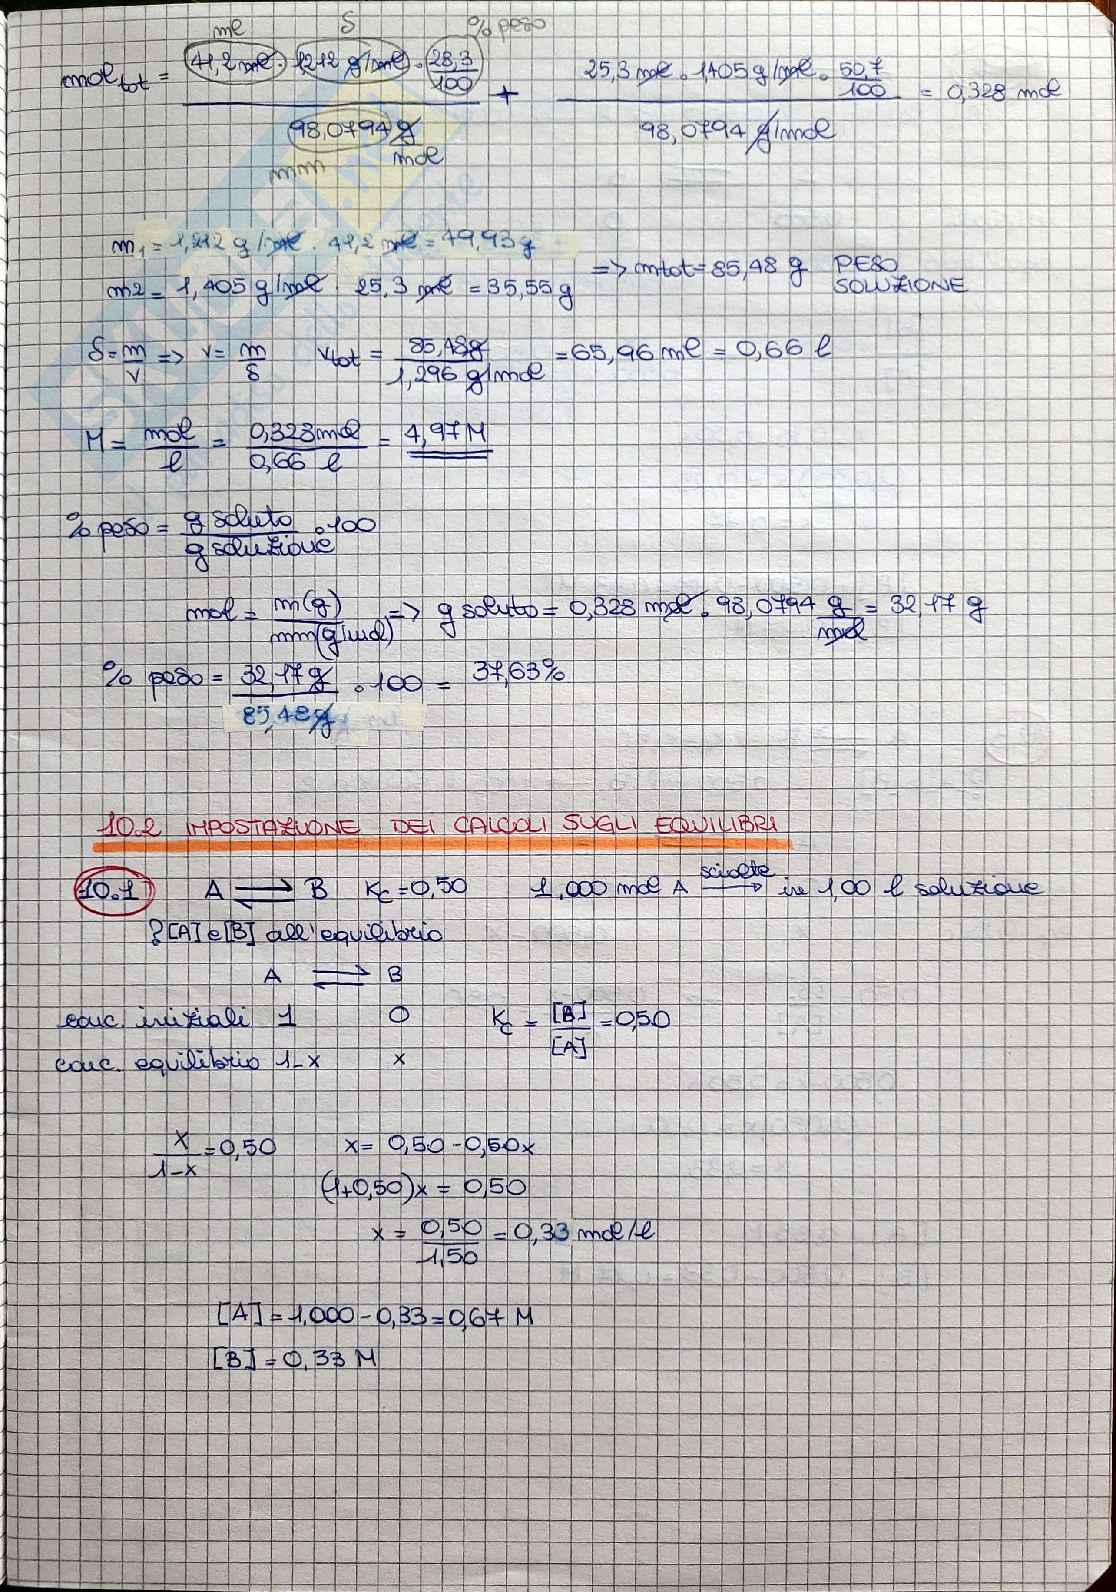 ml δ % peso
mol tot = 41,2 ml · 1,212 g/ml · 28,3/100 / 98,0794 g/mol + 25,3 ml · 1,405 g/ml · 50,7/100 / 98,0794 g/mol = 0,328 mol
mm
m1 = 1,212 g/ml · 41,2 ml = 49,93 g
m2 = 1,405 g/ml · 25,3 ml = 35,55 g => mtot = 85,48 g PESO SOLUZIONE
δ = m/v => v = m/δ vtot = 85,48 g / 1,296 g/mol = 65,96 ml = 0,66 l
M = mol/l = 0,328 mol / 0,66 l = 4,97 M
% peso = g soluto / g soluzione · 100
mol = m(g) / mm(g/mol) => g soluto = 0,328 mol · 98,0794 g/mol = 32,17 g
% peso = 32,17 g / 85,48 g · 100 = 37,63%
10.2 IMPOSTAZIONE DEI CALCOLI SUGLI EQUILIBRI
10.1 A ⇌ B Kc = 0,50 1,000 mol A sciolte → in 1,00 l soluzione
? [A] e [B] all'equilibrio
A ⇌ B
conc. iniziali 1 0 Kc = [B]/[A] = 0,50
conc. equilibrio 1-x x
x/1-x = 0,50 x = 0,50 - 0,50x
(1+0,50)x = 0,50
x = 0,50/1,50 = 0,33 mol/l
[A] = 1,000 - 0,33 = 0,67 M
[B] = 0,33 M